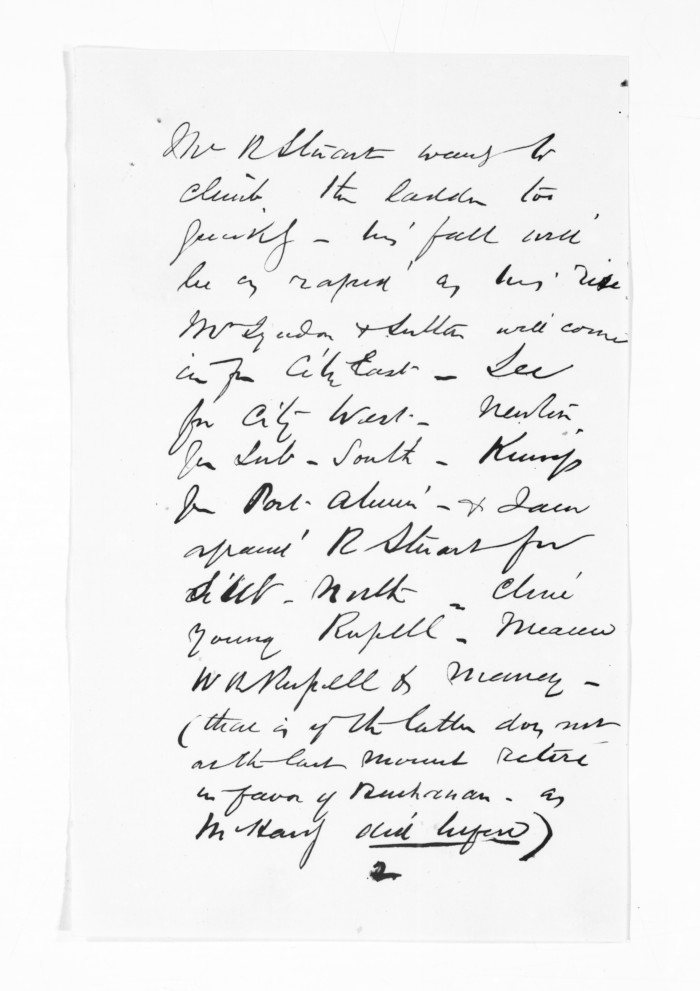 Mr R Stuart wants to
climb the ladder too
quickly - his fall will
be as rapid as his rise
Mr Lyndon & Sutton will come
in for City East - Lee
for City West - Newton
for Sub - South -
for Port Ahuriri - &
against R Stuart for
Sub - North - Clive
young Russell - Meanee
W R Russell & Maney -
(that is if the latter does not
at the last moment retire
in favor of Buchanan - as
McHardy did before)
2